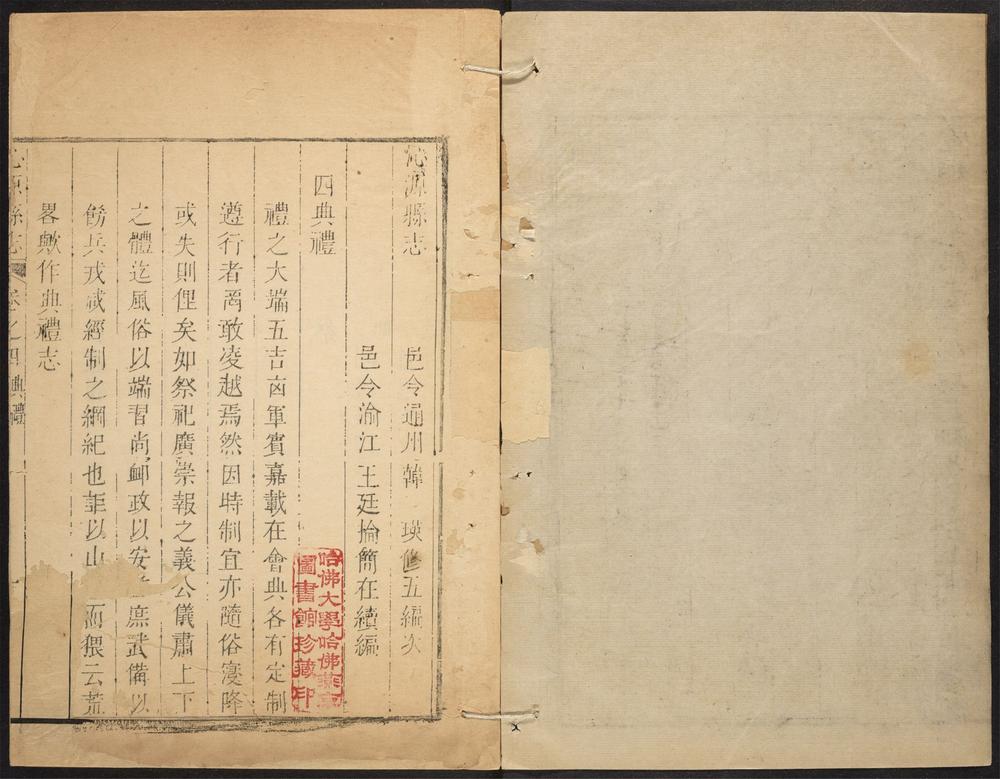 沁源縣志 邑令通州韓 瑛修五編次
邑令渝江王廷掄簡在續編
四典禮
禮之大端五吉凶軍賓嘉載在會典各有定制
遵行者罔敢凌越焉然因時制宜亦隨俗寖降
或失則俚矣如祭祀廣崇報之義公儀肅上下
之體迄風俗以端習尚郵政以安 庶武備以
飭兵戎咸經制之綱紀也詎以山 而猥云荒
畧歟作典禮志
沁源縣志 卷之四典禮 一
哈佛大學哈佛燕京
圖書館珍藏印